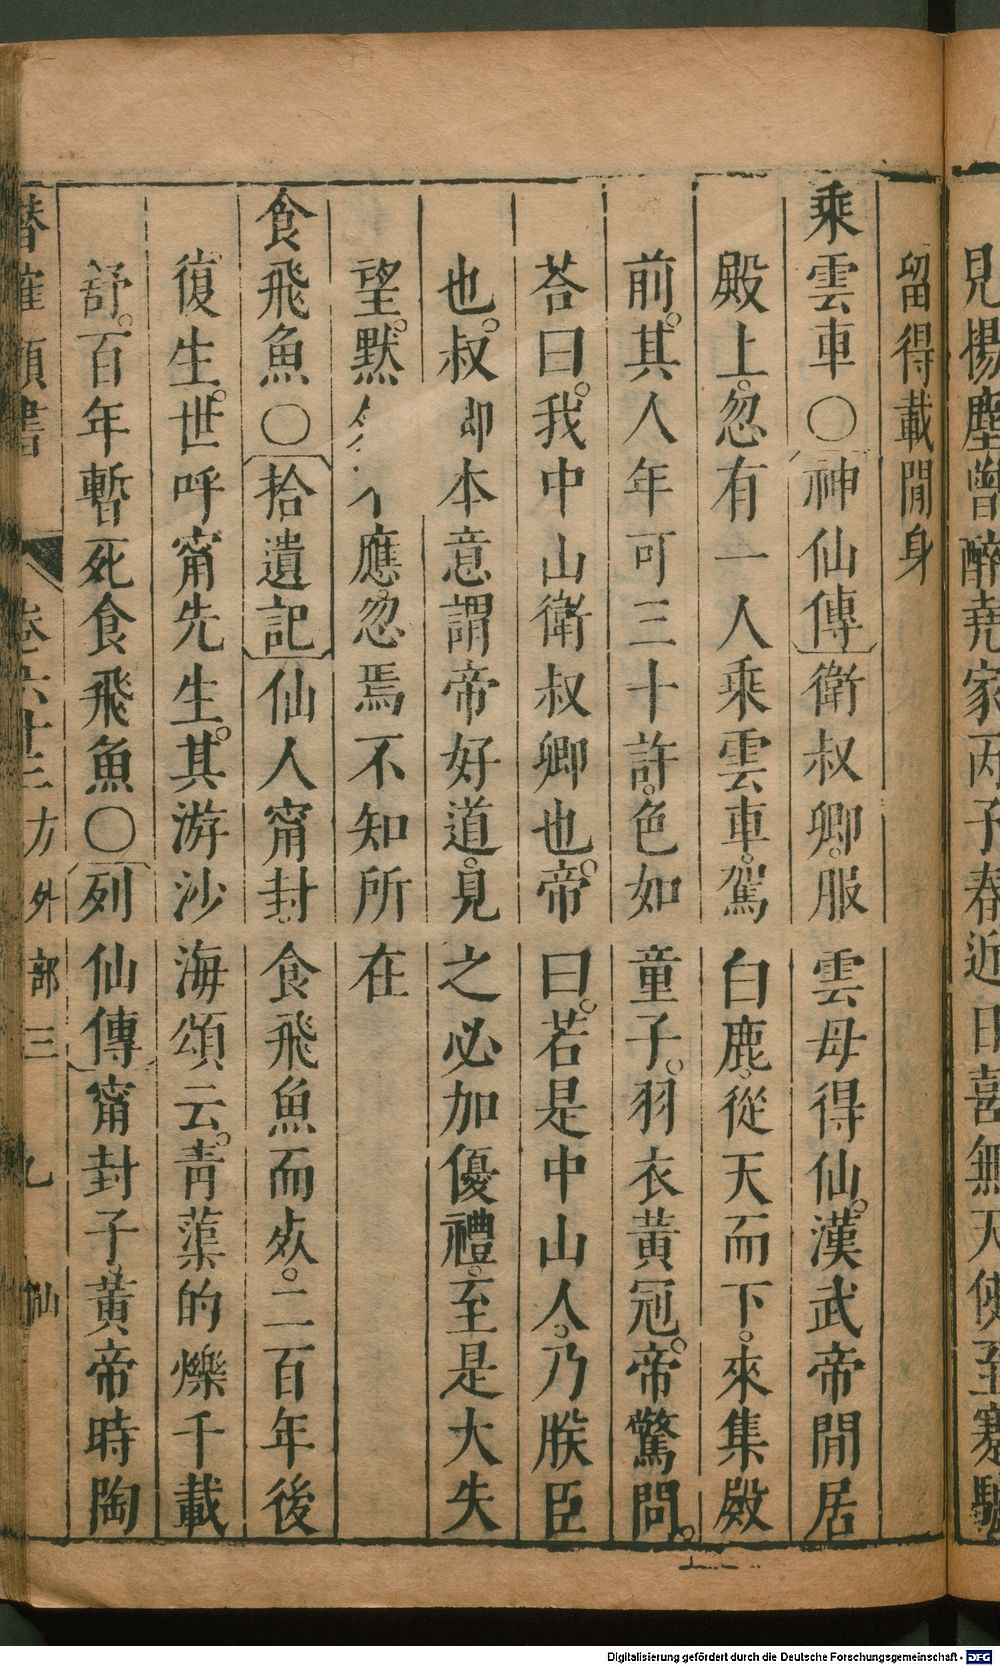 見楊塵曾醉堯家兩子春近日喜無天使至寒驢
留得載閒身
乘雲車○神仙傳衛叔卿。服雲母得仙。漢武帝閒居
殿上。忽有一人乘雲車。駕白鹿。從天而下。來集殿
前。其人年可三十許。色如童子。羽衣黃冠。帝驚問。
荅曰。我中山衛叔卿也。帝曰。若是中山人。乃朕臣
也。叔卿本意謂帝好道。見之必加優禮。至是大失
望。默 應。忽焉不知所在
食飛魚○拾遺記仙人甯封食飛魚而死。二百年後
復生。世呼甯先生。其游沙海頌云。青蕖的爍千載
舒。百年暫死食飛魚○列仙傳甯封子。黃帝時陶
潛確類書 卷六十三 方外部三 九 仙
Digitalisierung gefördert durch die Deutsche Forschungsgemeinschaft - DFG